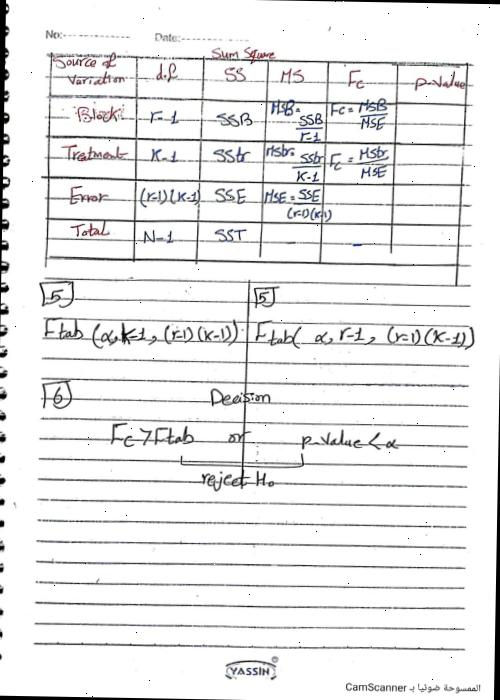 No:- Date:-
Sum Square
Source of Variation d.f SS MS Fc p-value
Block r-1 SSB MSB = SSB/r-1 Fc = MSB/MSE
Treatment K-1 SStr MStr = SStr/K-1 Fc = MStr/MSE
Error (r-1)(K-1) SSE MSE = SSE/(r-1)(K-1)
Total N-1 SST - -
5 5
Ftab (α, K-1, (r-1)(K-1)) Ftab( α, r-1, (r-1)(K-1))
6 Decision
Fc > Ftab or p-value < α
reject H₀
YASSIN
الممسوحة ضوئيا بـ CamScanner